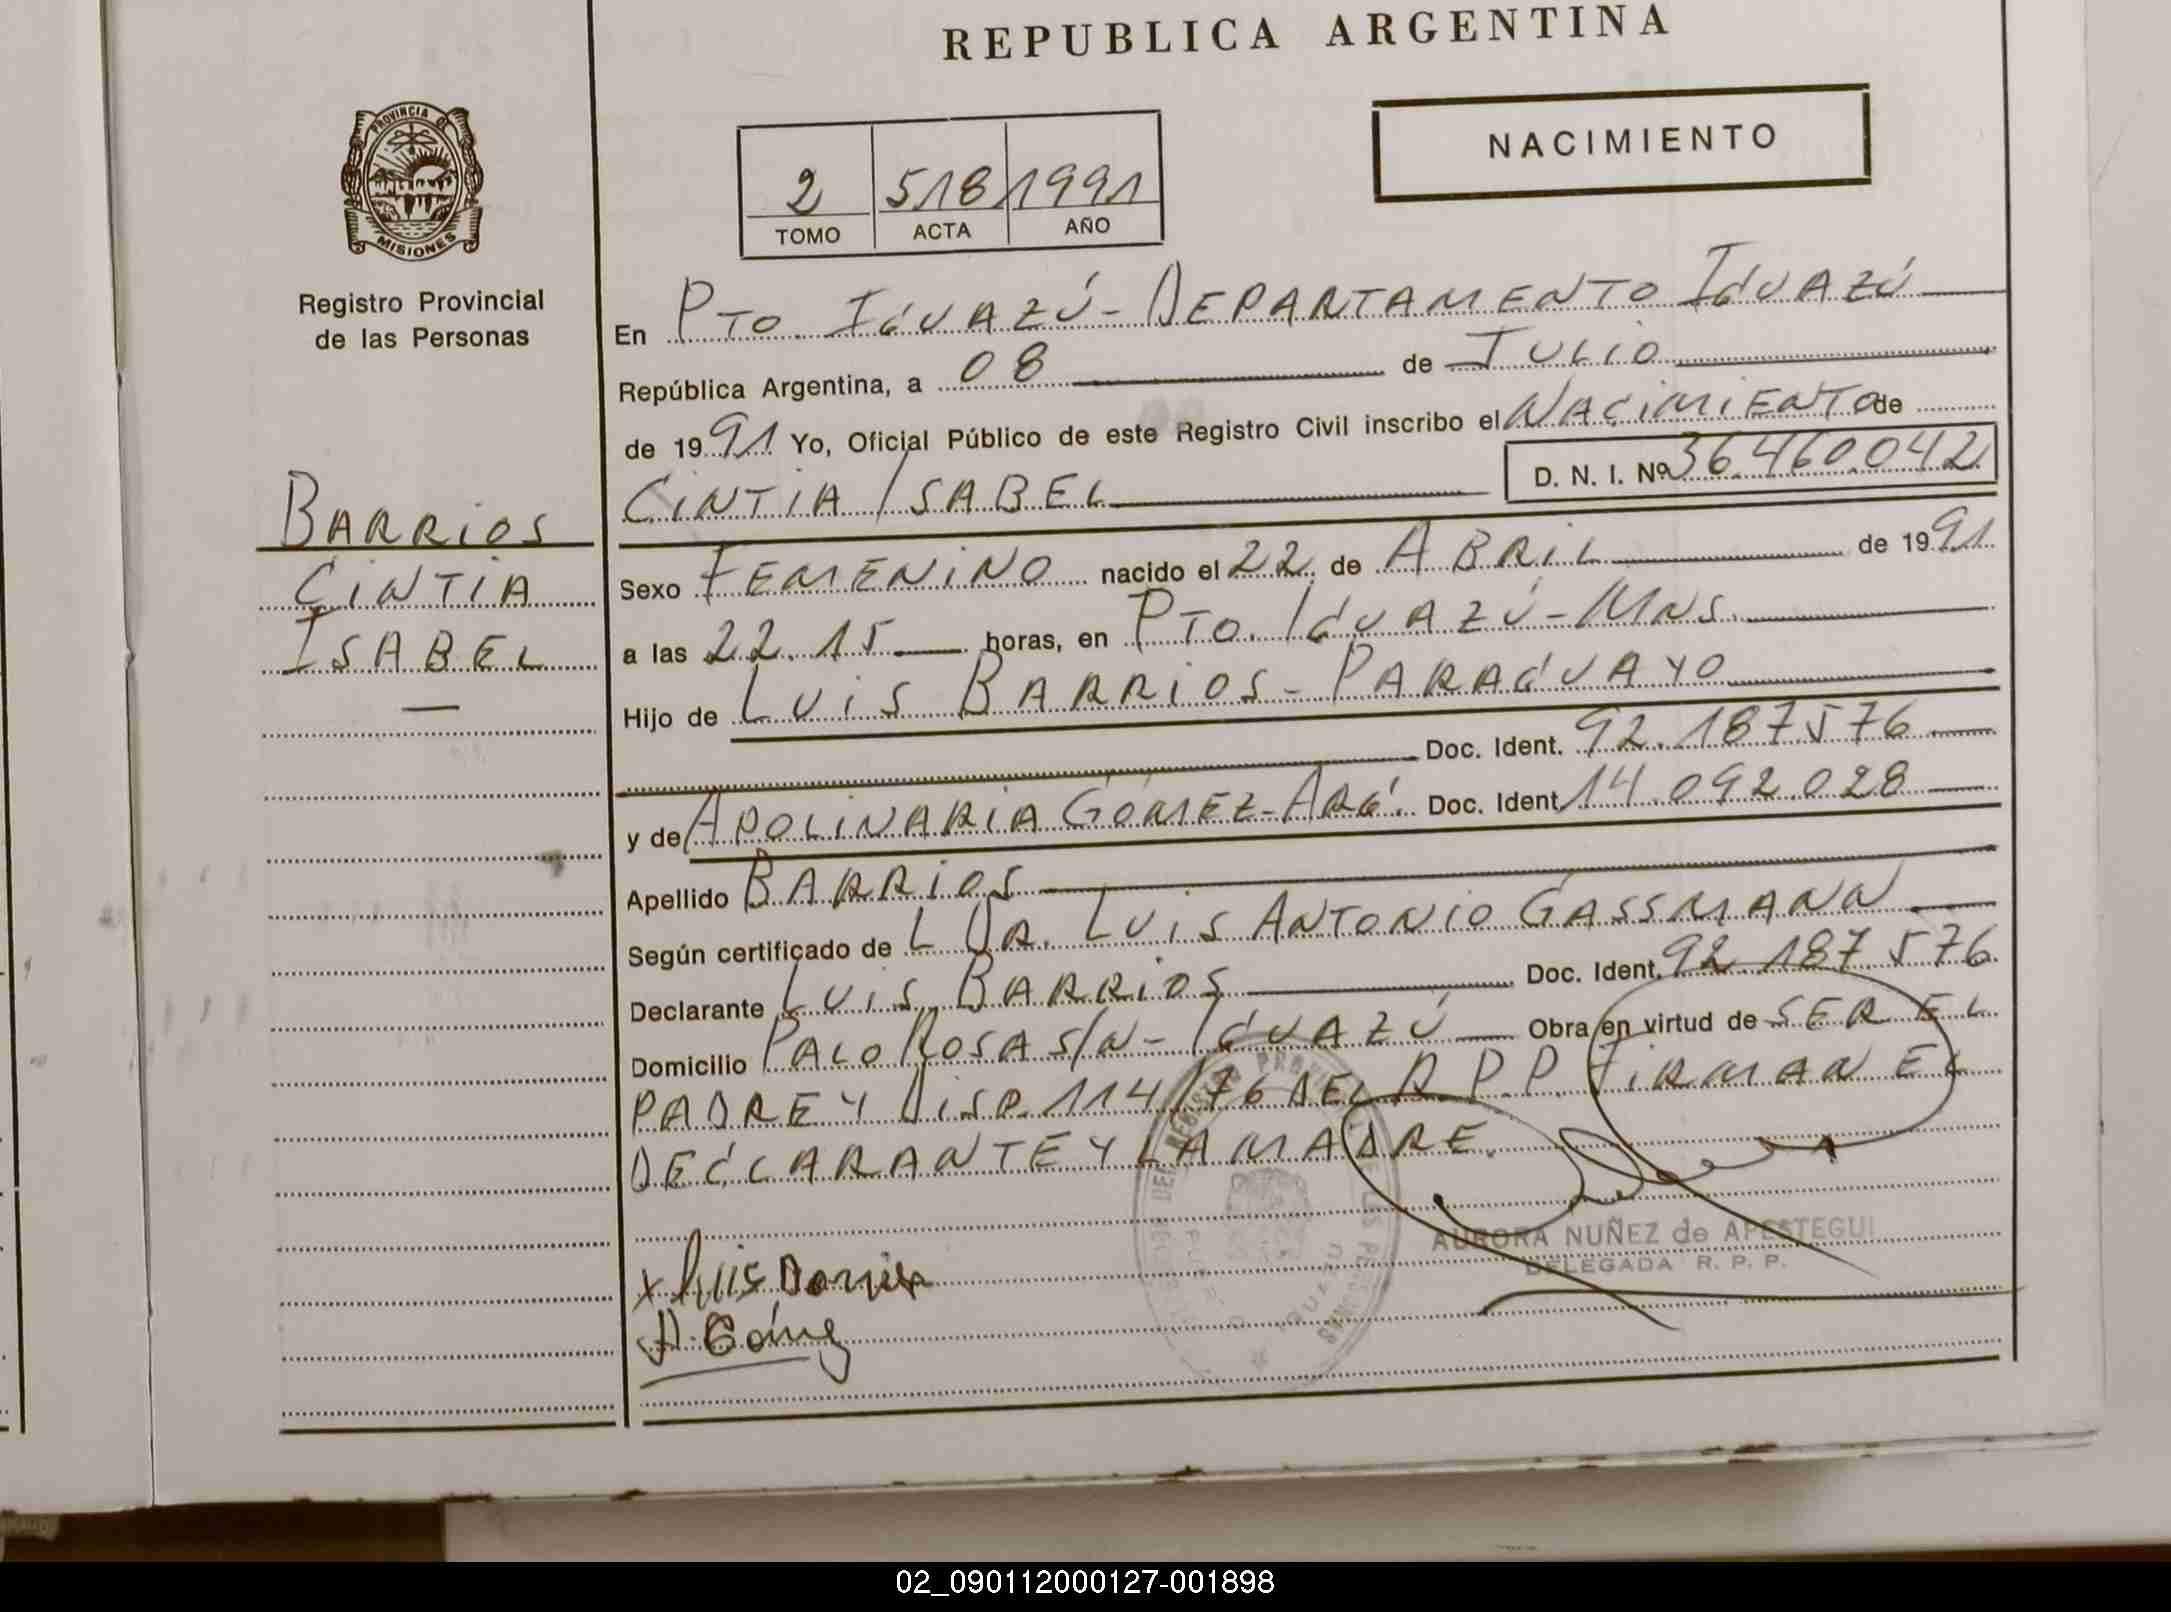 REPUBLICA ARGENTINA
PROVINCIA DE
MISIONES
Registro Provincial
de las Personas
NACIMIENTO
2 518 1991
TOMO ACTA AÑO
En PTO. IGUAZÚ - DEPARTAMENTO IGUAZÚ
República Argentina, a 08 de JULIO
de 1991 Yo, Oficial Público de este Registro Civil inscribo el NACIMIENTO de
CINTIA ISABEL D. N. I. Nº 36.460.042
BARRIOS
CINTIA
ISABEL
Sexo FEMENINO nacido el 22 de ABRIL de 1991
a las 22.15 horas, en PTO. IGUAZÚ - MNS.
Hijo de LUIS BARRIOS - PARAGUAYO
Doc. Ident. 92.187576
y de APOLINARIA GÓMEZ - ARG. Doc. Ident. 14.092.028
Apellido BARRIOS
Según certificado de L DR. LUIS ANTONIO GASSMANN
Declarante LUIS BARRIOS Doc. Ident. 92.187.576
Domicilio PALO ROSA S/N - IGUAZÚ Obra en virtud de SER EL
PADRE Y DISP. 114/76 DEL R.P.P. FIRMAN EL
DECLARANTE Y LA MADRE.
x Luis Barrios
A. Gómez
AURORA NUÑEZ de APESTEGUI
DELEGADA R. P. P.
02_090112000127-001898